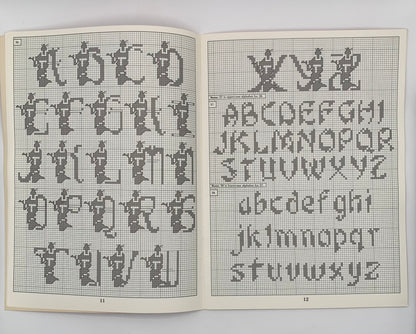 A B C D
E F G H I
J K L M N
O P Q R S
T U V W
11
X Y Z
ABCDEFGHI
JKLMNOPQR
STUVWXYZ
abcdefghi
jklmnopqr
stuvwxyz
12